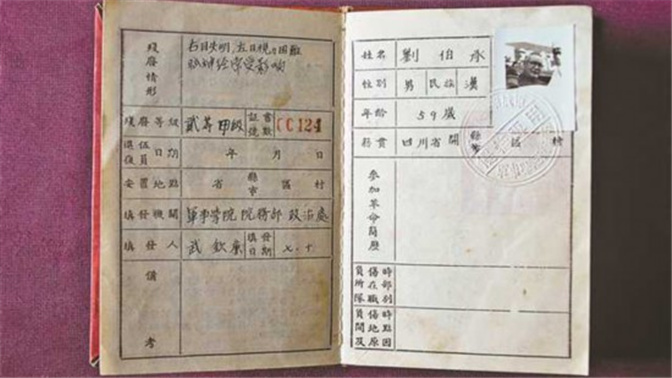 殘廢情形 右目失明，左目視力困難
腦神經常受影响
殘廢等級 貳等甲級 証書號數 CC124
退伍復員日期 年 月 日
安置地點 省 縣市 區 村
填發機關 軍事學院 院務部 政治處
填發人 武欽廉 填發日期 七.十.
備考
姓名 劉伯承
性別 男 民族 漢
年齡 59歲
籍貫 四川省 開 縣市 區 村
參加革命簡歷
負傷時所在部隊職別
負傷時間地點及原因